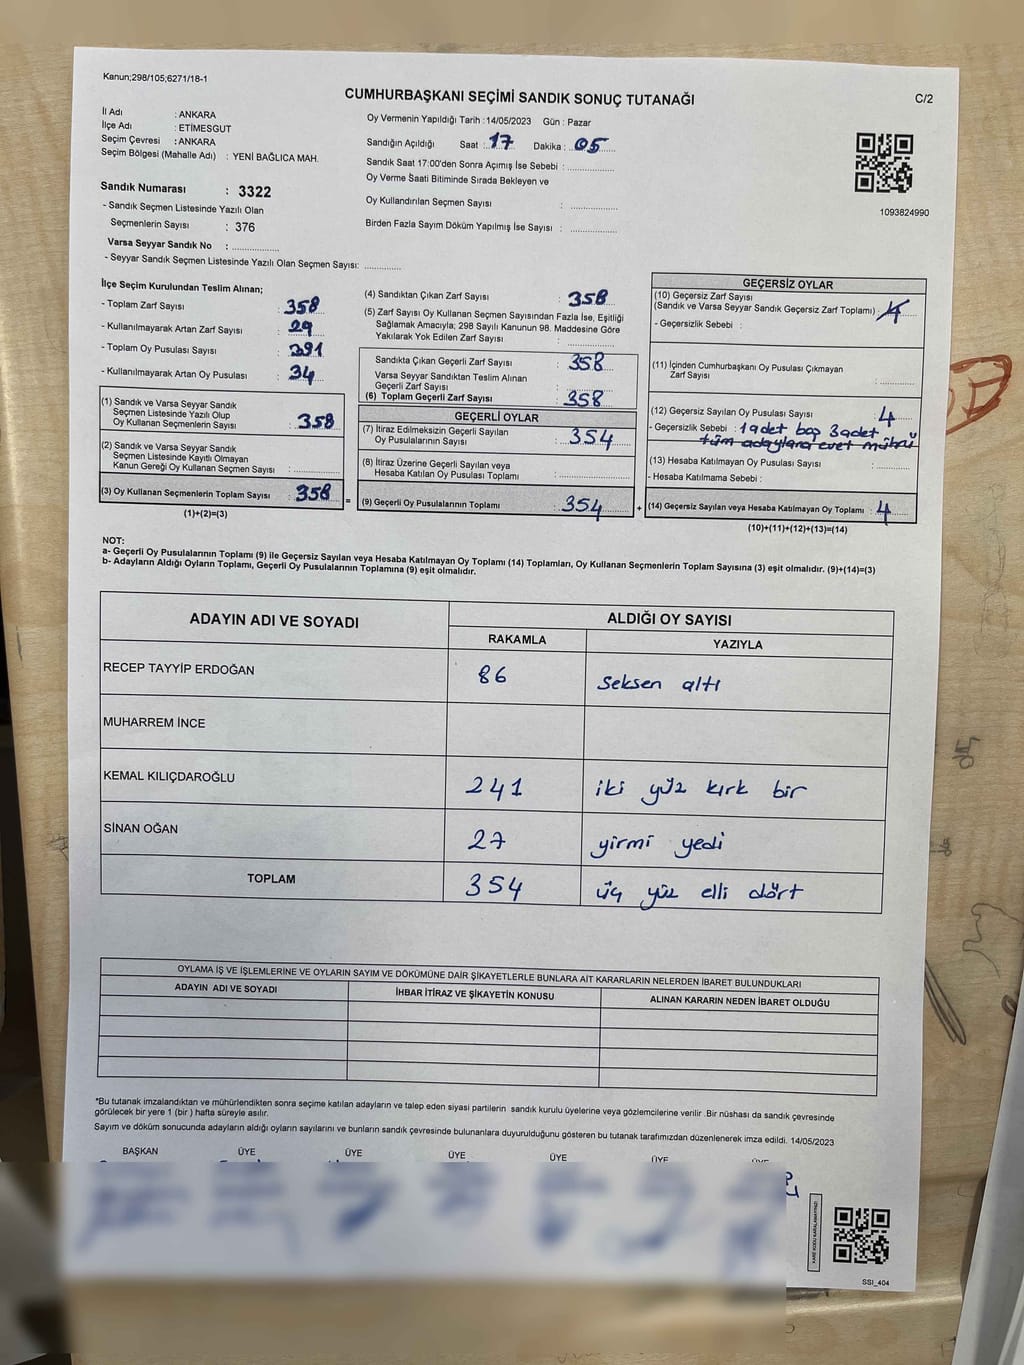 Kanun;298/105;6271/18-1
C/2
CUMHURBAŞKANI SEÇİMİ SANDIK SONUÇ TUTANAĞI
İl Adı : ANKARA
İlçe Adı : ETİMESGUT
Seçim Çevresi : ANKARA
Seçim Bölgesi (Mahalle Adı) : YENİ BAĞLICA MAH.
Sandık Numarası : 3322
- Sandık Seçmen Listesinde Yazılı Olan
Seçmenlerin Sayısı : 376
Varsa Seyyar Sandık No : ..................
- Seyyar Sandık Seçmen Listesinde Yazılı Olan Seçmen Sayısı: .............
Oy Vermenin Yapıldığı Tarih : 14/05/2023 Gün : Pazar
Sandığın Açıldığı Saat : 17 Dakika : 05
Sandık Saat 17:00'den Sonra Açımış İse Sebebi : ..................
Oy Verme Saati Bitiminde Sırada Bekleyen ve
Oy Kullandırılan Seçmen Sayısı : ..................
Birden Fazla Sayım Döküm Yapılmış İse Sayısı : ..................
1093824990
İlçe Seçim Kurulundan Teslim Alınan;
- Toplam Zarf Sayısı : 358
- Kullanılmayarak Artan Zarf Sayısı : 29
- Toplam Oy Pusulası Sayısı : 391
- Kullanılmayarak Artan Oy Pusulası : 34
(1) Sandık ve Varsa Seyyar Sandık
Seçmen Listesinde Yazılı Olup
Oy Kullanan Seçmenlerin Sayısı : 358
(2) Sandık ve Varsa Seyyar Sandık
Seçmen Listesinde Kayıtlı Olmayan
Kanun Gereği Oy Kullanan Seçmen Sayısı : ..............
(3) Oy Kullanan Seçmenlerin Toplam Sayısı : 358
(1)+(2)=(3)
=
(4) Sandıktan Çıkan Zarf Sayısı : 358
(5) Zarf Sayısı Oy Kullanan Seçmen Sayısından Fazla İse, Eşitliği
Sağlamak Amacıyla; 298 Sayılı Kanunun 98. Maddesine Göre
Yakılarak Yok Edilen Zarf Sayısı : ..............
Sandıkta Çıkan Geçerli Zarf Sayısı : 358
Varsa Seyyar Sandıktan Teslim Alınan
Geçerli Zarf Sayısı : ..............
(6) Toplam Geçerli Zarf Sayısı : 358
GEÇERLİ OYLAR
(7) İtiraz Edilmeksizin Geçerli Sayılan
Oy Pusulalarının Sayısı : 354
(8) İtiraz Üzerine Geçerli Sayılan veya
Hesaba Katılan Oy Pusulası Toplamı : ..............
(9) Geçerli Oy Pusulalarının Toplamı : 354
+
GEÇERSİZ OYLAR
(10) Geçersiz Zarf Sayısı
(Sandık ve Varsa Seyyar Sandık Geçersiz Zarf Toplamı) : 4
- Geçersizlik Sebebi :
(11) İçinden Cumhurbaşkanı Oy Pusulası Çıkmayan
Zarf Sayısı : ..............
(12) Geçersiz Sayılan Oy Pusulası Sayısı : 4
- Geçersizlik Sebebi : 1 adet boş 3 adet
tüm adaylara evet mührü
(13) Hesaba Katılmayan Oy Pusulası Sayısı : ..............
- Hesaba Katılmama Sebebi :
(14) Geçersiz Sayılan veya Hesaba Katılmayan Oy Toplamı : 4
(10)+(11)+(12)+(13)=(14)
NOT:
a- Geçerli Oy Pusulalarının Toplamı (9) ile Geçersiz Sayılan veya Hesaba Katılmayan Oy Toplamı (14) Toplamları, Oy Kullanan Seçmenlerin Toplam Sayısına (3) eşit olmalıdır. (9)+(14)=(3)
b- Adayların Aldığı Oyların Toplamı, Geçerli Oy Pusulalarının Toplamına (9) eşit olmalıdır.
ADAYIN ADI VE SOYADI ALDIĞI OY SAYISI
RAKAMLA YAZIYLA
RECEP TAYYİP ERDOĞAN 86 seksen altı
MUHARREM İNCE
KEMAL KILIÇDAROĞLU 241 iki yüz kırk bir
SİNAN OĞAN 27 yirmi yedi
TOPLAM 354 üç yüz elli dört
OYLAMA İŞ VE İŞLEMLERİNE VE OYLARIN SAYIM VE DÖKÜMÜNE DAİR ŞİKAYETLERLE BUNLARA AİT KARARLARIN NELERDEN İBARET BULUNDUKLARI
ADAYIN ADI VE SOYADI İHBAR İTİRAZ VE ŞİKAYETİN KONUSU ALINAN KARARIN NEDEN İBARET OLDUĞU
*Bu tutanak imzalandıktan ve mühürlendikten sonra seçime katılan adayların ve talep eden siyasi partilerin sandık kurulu üyelerine veya gözlemcilerine verilir .Bir nüshası da sandık çevresinde
görülecek bir yere 1 (bir ) hafta süreyle asılır.
Sayım ve döküm sonucunda adayların aldığı oyların sayılarını ve bunların sandık çevresinde bulunanlara duyurulduğunu gösteren bu tutanak tarafımızdan düzenlenerek imza edildi. 14/05/2023
BAŞKAN ÜYE ÜYE ÜYE ÜYE ÜYE ÜYE
KARE KODU KARALAMAYINIZ!
SSI_404